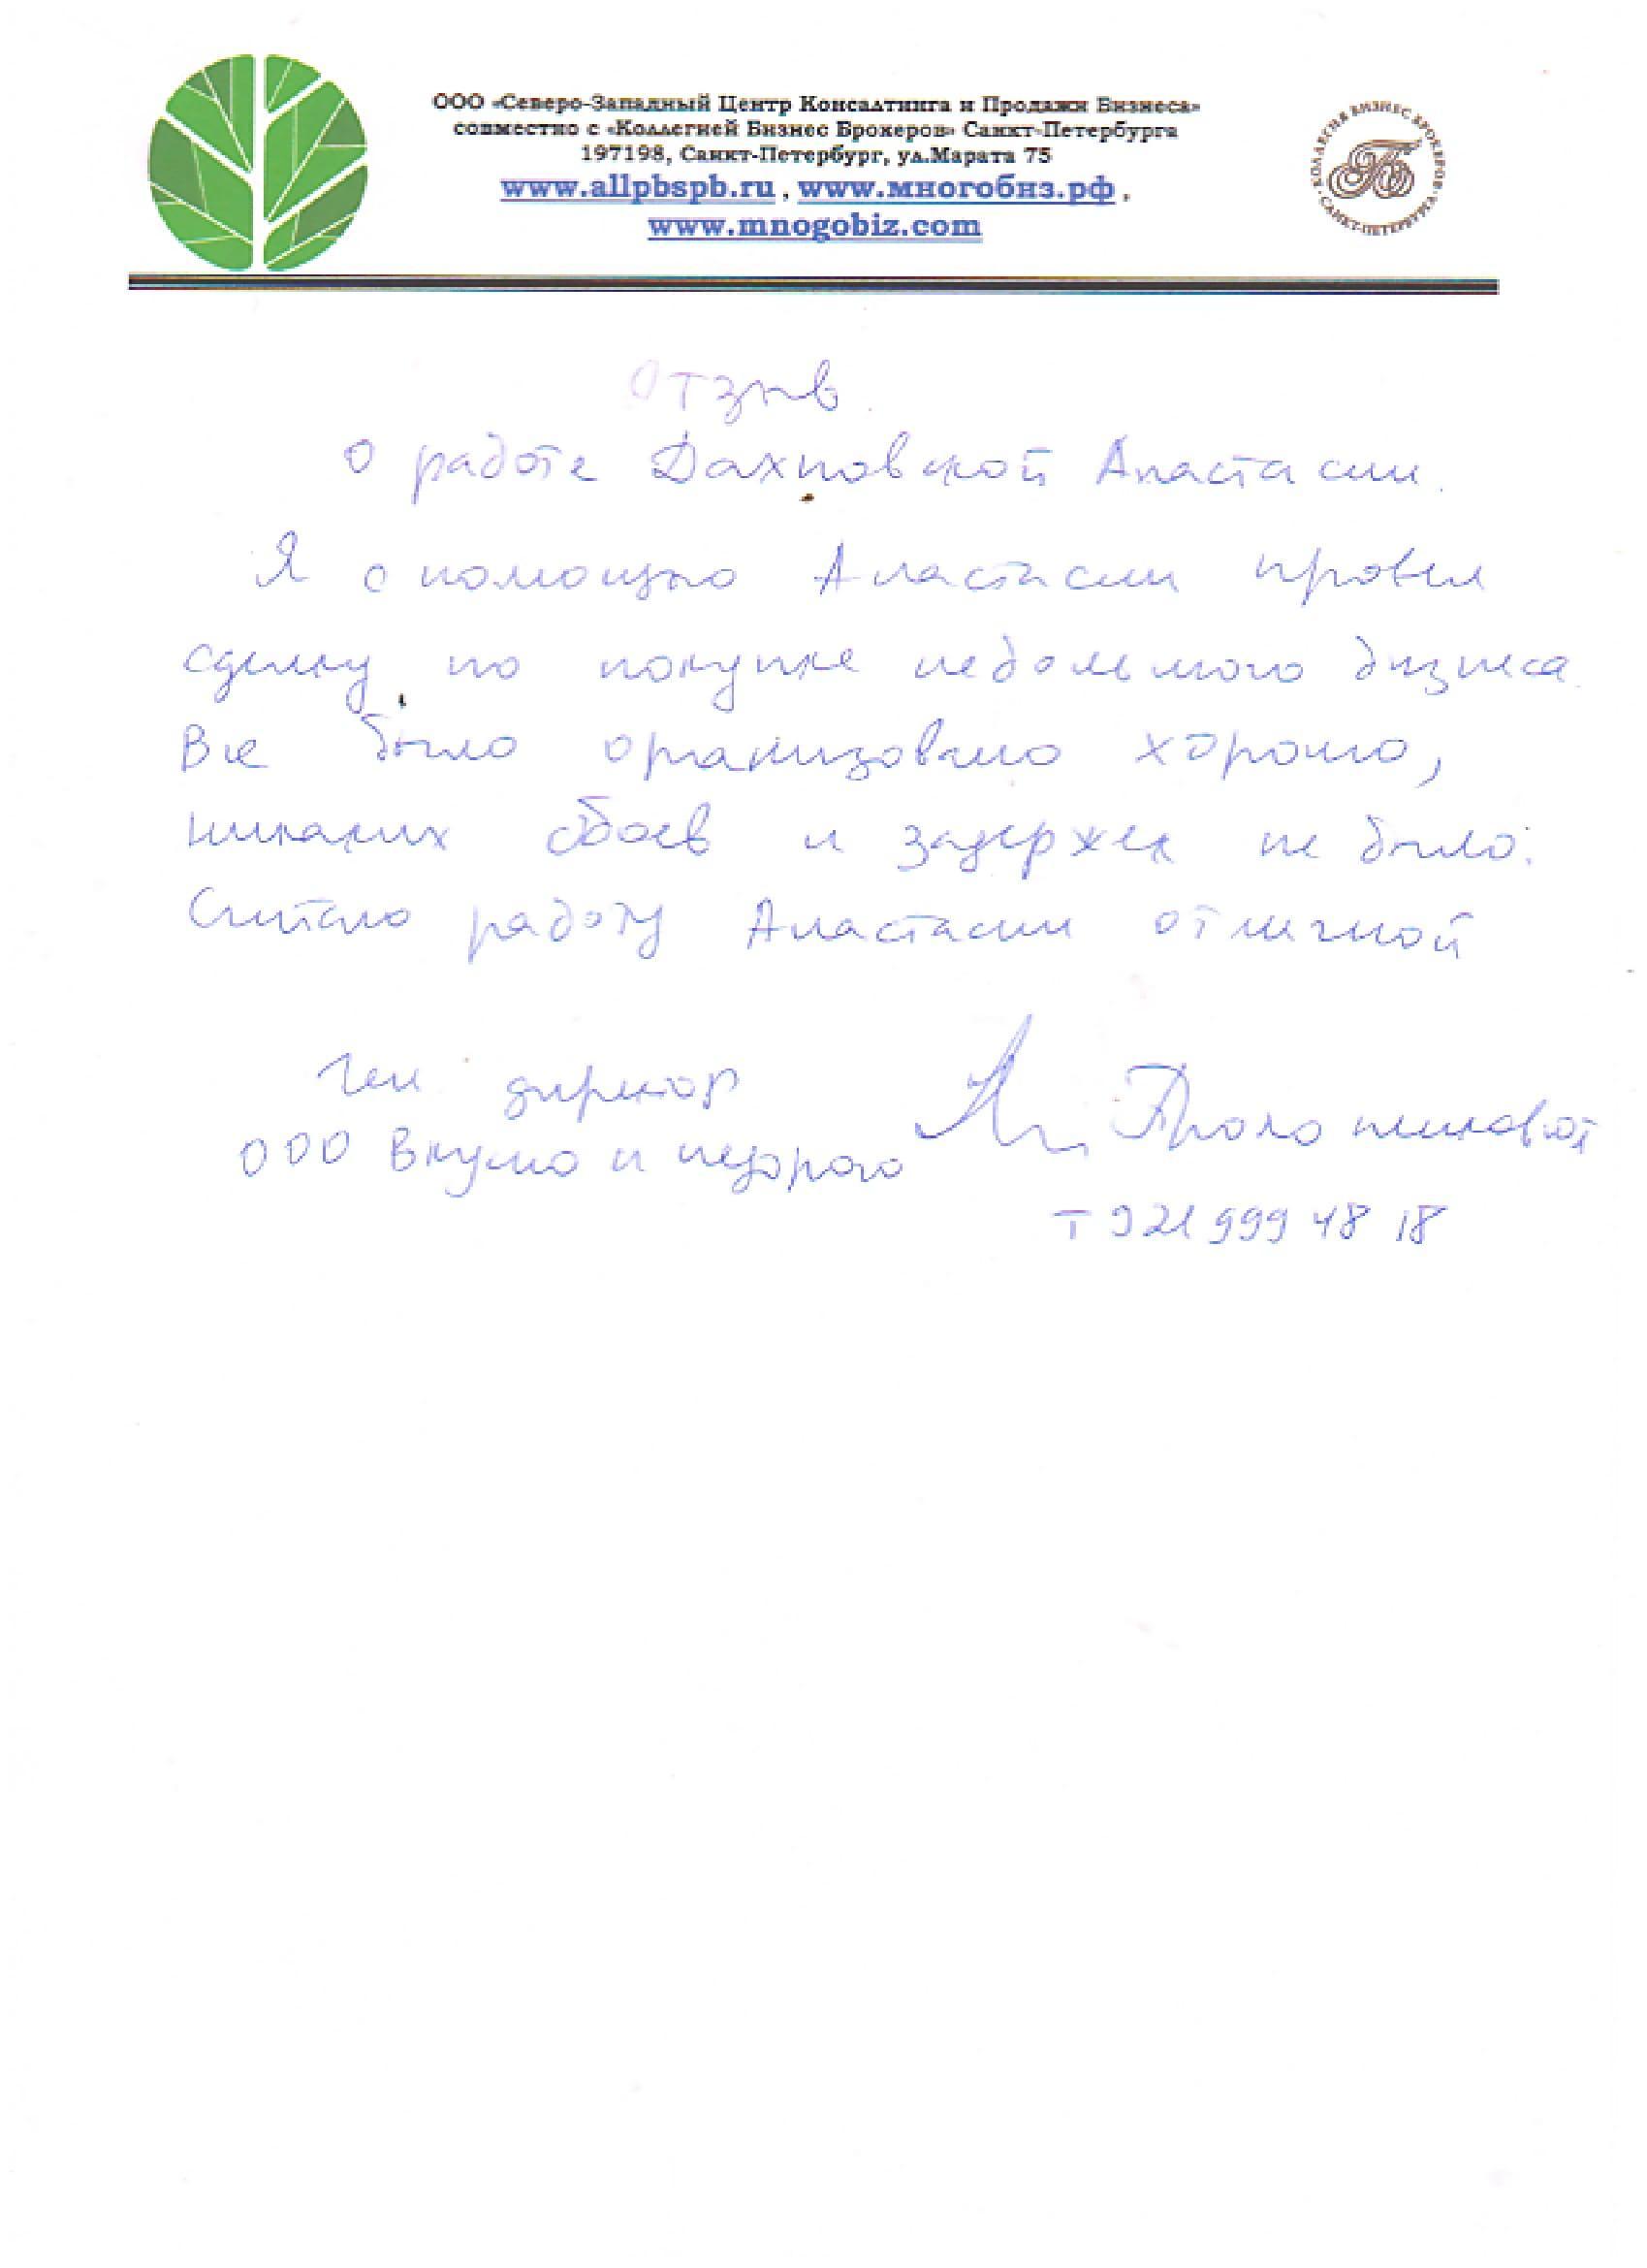 ООО «Северо-Западный Центр Консалтинга и Продажи Бизнеса»
совместно с «Коллегией Бизнес Брокеров» Санкт-Петербурга
197198, Санкт-Петербург, ул.Марата 75
www.allpbspb.ru , www.многобиз.рф ,
www.mnogobiz.com
КОЛЛЕГИЯ БИЗНЕС БРОКЕРОВ
САНКТ-ПЕТЕРБУРГА
Отзыв
О работе Дахновской Анастасии.
Я с помощью Анастасии провел
сделку по покупке небольшого бизнеса
Все было организовано хорошо,
никаких сбоев и задержек не было.
Считаю работу Анастасии отличной
Ген директор
ООО Вкусно и недорого
т 921 999 48 18